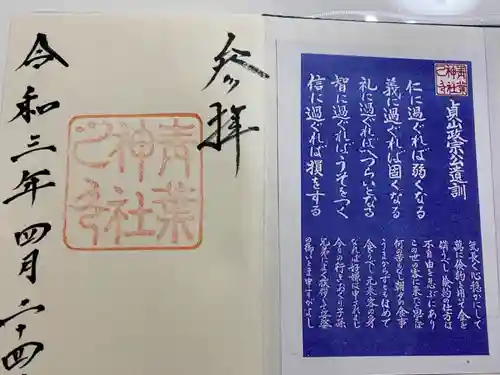 参拝
青葉
神社
之印
令和三年四月二十四
青葉
神社
之印
貞山政宗公遺訓
仁に過ぐれば弱くなる
義に過ぐれば固くなる
礼に過ぐればへつらいとなる
智に過ぐればうそをつく
信に過ぐれば損をする
気長く心穏かにして
萬に倹約を用て金を
備うべし倹約の仕方は
不自由を忍ぶにあり
この世の客に来たと思えば
何の苦もなし朝夕の食事
うまからずともほめて
食うべし元来客の身
なれば好嫌は申されまじ
今日の行きおくり子孫
兄弟によく挨拶して娑婆
の御いとま申すがよし